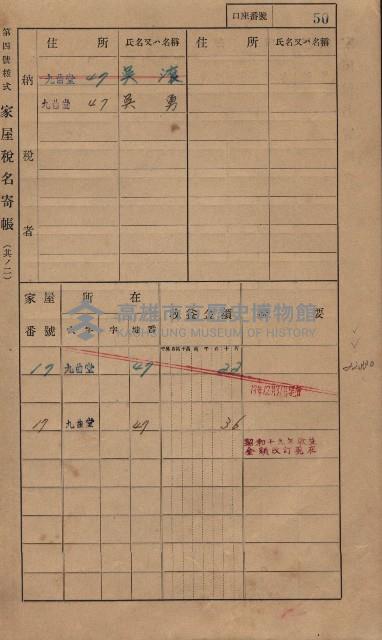 口座番號 50
第四號樣式 家屋稅名寄帳 (其ノ二)
納稅者
住所 氏名又ハ名稱 住所 氏名又ハ名稱
九曾堂 47 吳
九曾堂 47 吳勇
家屋番號 所在 收金金額 要
字 字 地番
17 九曾堂 47 22
17 九曾堂 47 36
昭和十九年
金額改訂
高雄市立歷史博物館
KAOHSIUNG MUSEUM OF HISTORY